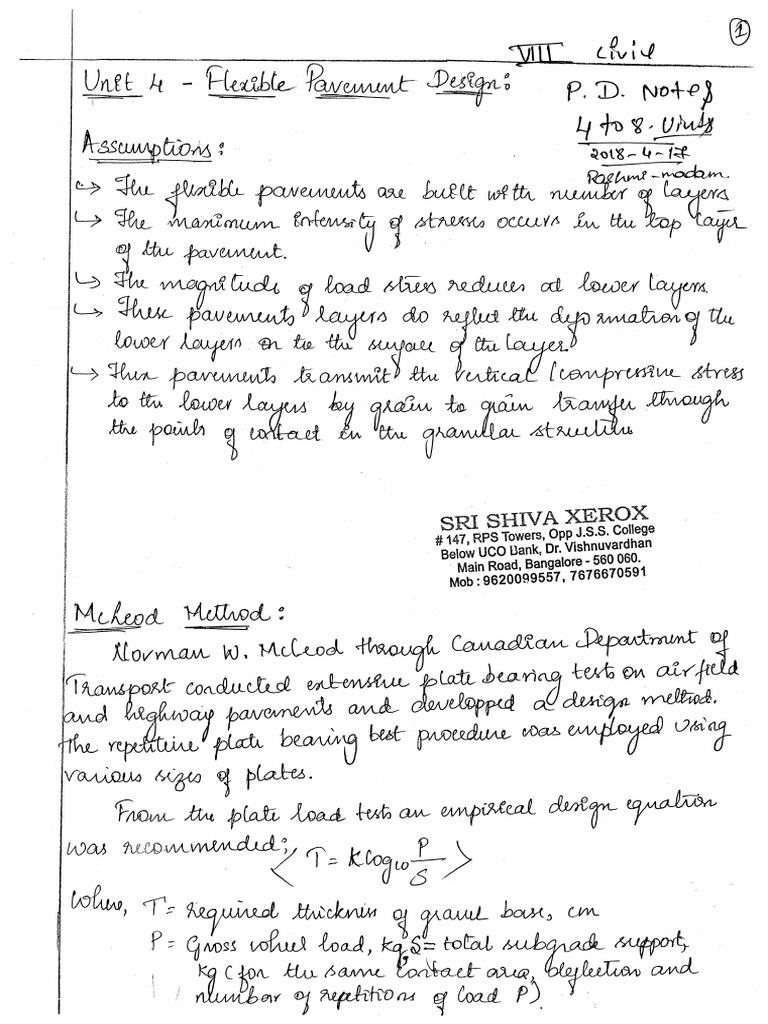 1
VIII Civil
Unit 4 - Flexible Pavement Design:
P. D. Notes
4 to 8. Units
2018-4-17
Rashmi-madam.
Assumptions:
↪ The flexible pavements are built with number of layers
↪ The maximum intensity of stresses occurs in the top layer
of the pavement.
↪ The magnitude of load stress reduces at lower layers.
↪ These pavements layers do reflect the deformation of the
lower layers on to the surface of the layer.
↪ These pavements transmit the vertical / compressive stress
to the lower layers by grain to grain transfer through
the points of contact in the granular structure
SRI SHIVA XEROX
# 147, RPS Towers, Opp J.S.S. College
Below UCO Bank, Dr. Vishnuvardhan
Main Road, Bangalore - 560 060.
Mob : 9620099557, 7676670591
McLeod Method:
Norman W. McLeod through Canadian Department of
Transport conducted extensive plate bearing tests on airfield
and highway pavements and developped a design method.
The repetitive plate bearing test procedure was employed using
various sizes of plates.
From the plate load tests an empirical design equation
was recommended;
< T = K log₁₀ P/S >
Where, T = required thickness of gravel base, cm
P = Gross wheel load, kg, S = total subgrade support,
kg (for the same contact area, deflection and
number of repetitions of load P)